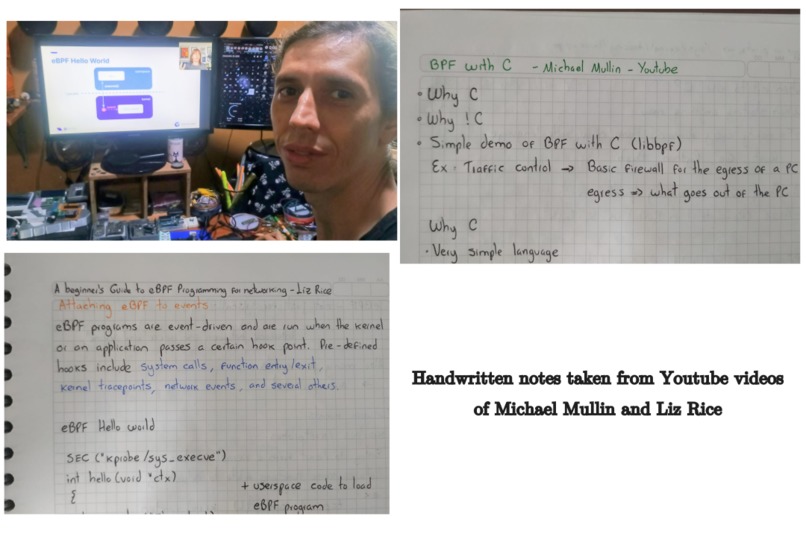 eBPF Hello World
BPF with C - Michael Mullin - Youtube
Why C
Why ! C
Simple demo of BPF with C (libbpf)
Ex. Traffic control → Basic firewall for the egress of a PC
egress => what goes out of the PC
Why C
Very simple language
A beginner's Guide to eBPF Programming for networking - Liz Rice
Attaching eBPF to events
eBPF programs are event-driven and are run when the kernel
or an application passes a certain hook point. Pre-defined
hooks include system calls, function entry/exit,
kernel tracepoints, network events, and several others.
eBPF Hello world
SEC ("kprobe/sys_execve")
int hello (void *ctx)
{
+ userspace code to load
eBPF program
Handwritten notes taken from Youtube videos
of Michael Mullin and Liz Rice